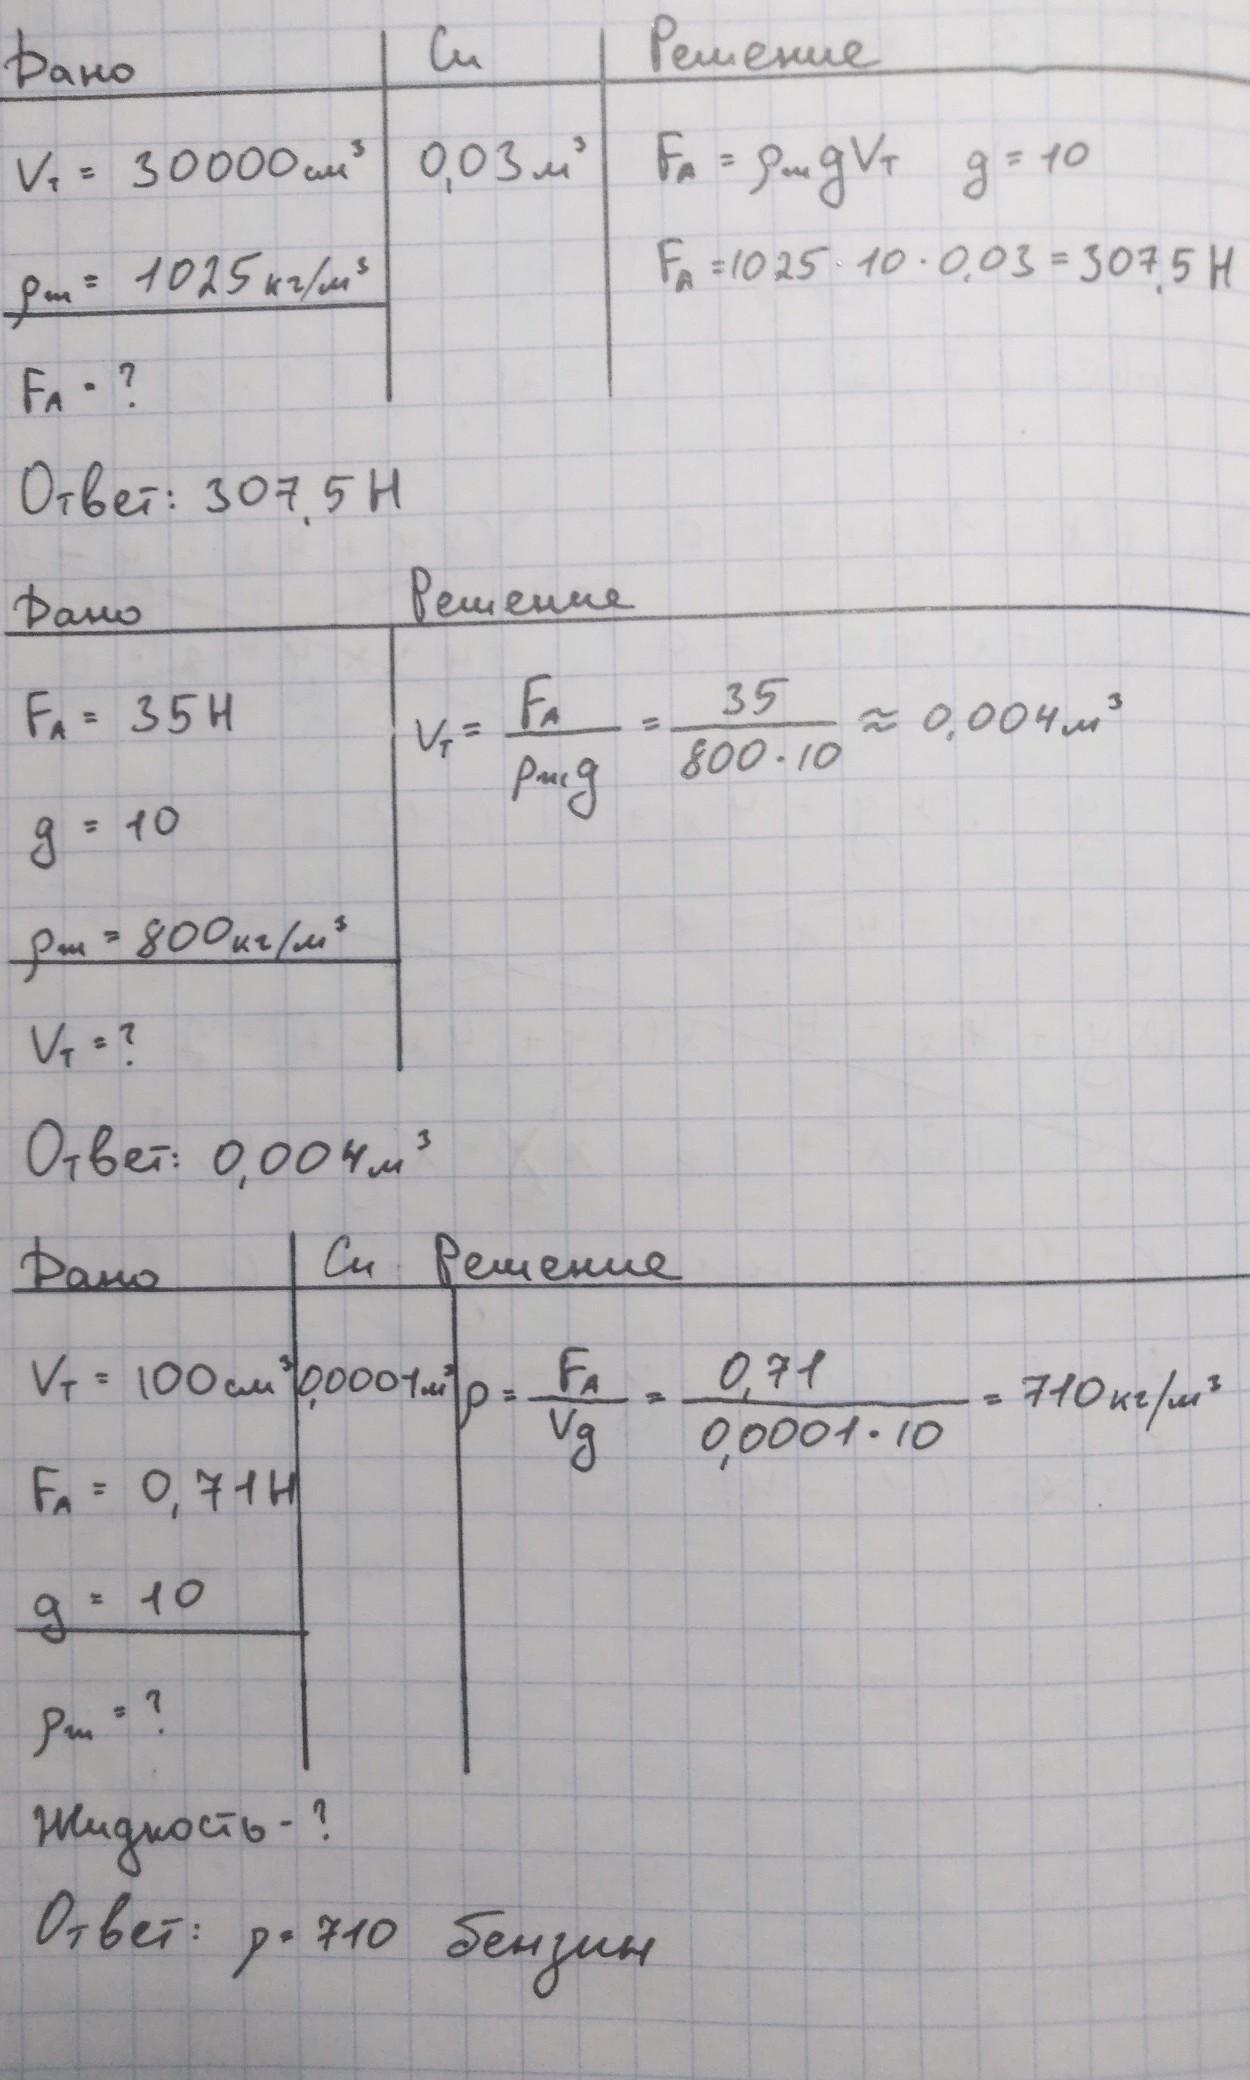 Дано Си Решение
Vт = 30000 см³ 0,03 м³ Fа = ρж g Vт g = 10
ρж = 1025 кг/м³ Fа = 1025 · 10 · 0,03 = 307,5 Н
Fа - ?
Ответ: 307,5 Н
Дано Решение
Fа = 35 Н Vт = Fа / ρж g = 35 / 800 · 10 ≈ 0,004 м³
g = 10
ρж = 800 кг/м³
Vт = ?
Ответ: 0,004 м³
Дано Си Решение
Vт = 100 см³ 0,0001 м³ ρ = Fа / Vg = 0,71 / 0,0001 · 10 = 710 кг/м³
Fа = 0,71 Н
g = 10
ρж = ?
Жидкость - ?
Ответ: ρ = 710 бензин